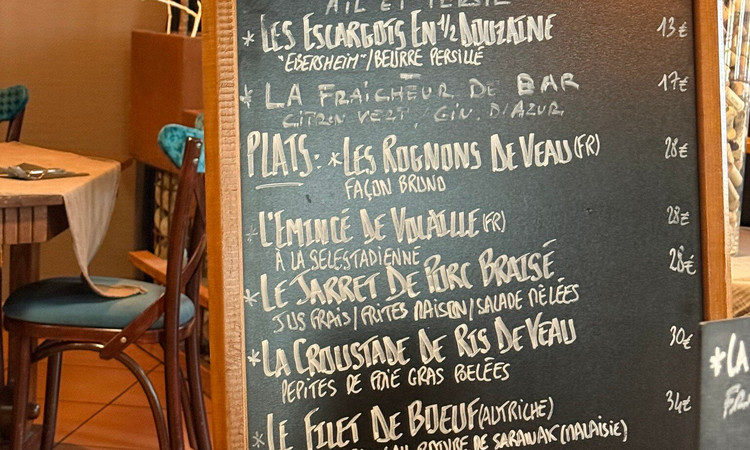 AIL ET PERSIL
* LES ESCARGOTS EN 1/2 DOUZAINE 13€
"EBERSHEIM"/BEURRE PERSILLÉ
* LA FRAICHEUR DE BAR 17€
CITRON VERT / GIN D'AZUR
PLATS: * LES ROGNONS DE VEAU (FR) 28€
FAÇON BRUNO
* L'EMINCÉ DE VOLAILLE (FR) 28€
À LA SELESTADIENNE
* LE JARRET DE PORC BRAISÉ 28€
JUS FRAIS/FRITES MAISON/SALADE MÊLÉES
* LA CROUSTADE DE RIS DE VEAU 30€
PEPITES DE FOIE GRAS POELÉES
* LE FILET DE BOEUF (AUTRICHE) 34€
POIVRE DE SARAWAK (MALAISIE)
* LA